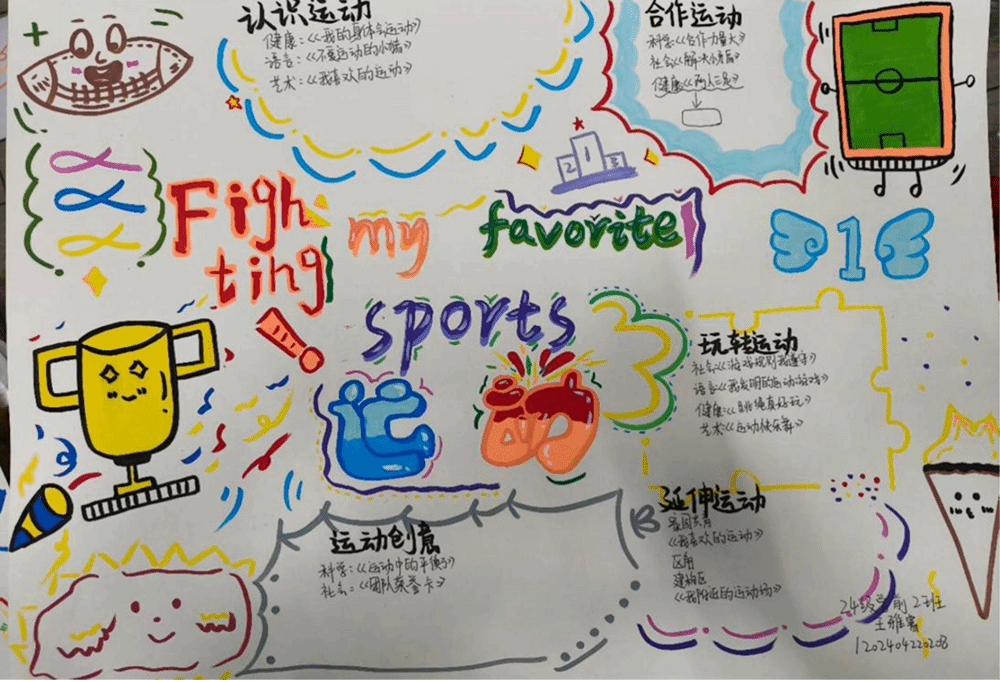 认识运动
健康:《我的身体会运动》
语言:《不爱运动的小猪》
艺术:《我喜欢的运动》
合作运动
科学:《合作力量大》
社会:《解决矛盾》
健康:《两人三足》
2 1 3
Figh
ting!
my favorite
sports
运动
1
玩转运动
社会:《游戏规则我遵守》
语言:《我发明的运动游戏》
健康:《跳绳真好玩》
艺术:《运动快乐舞》
运动创意
科学:《运动中的平衡》
社会:《团队荣誉卡》
延伸运动
家园共育
《我喜欢的运动》
区角
建构区
《我附近的运动场》
24级学前2班
王雅
120240422020